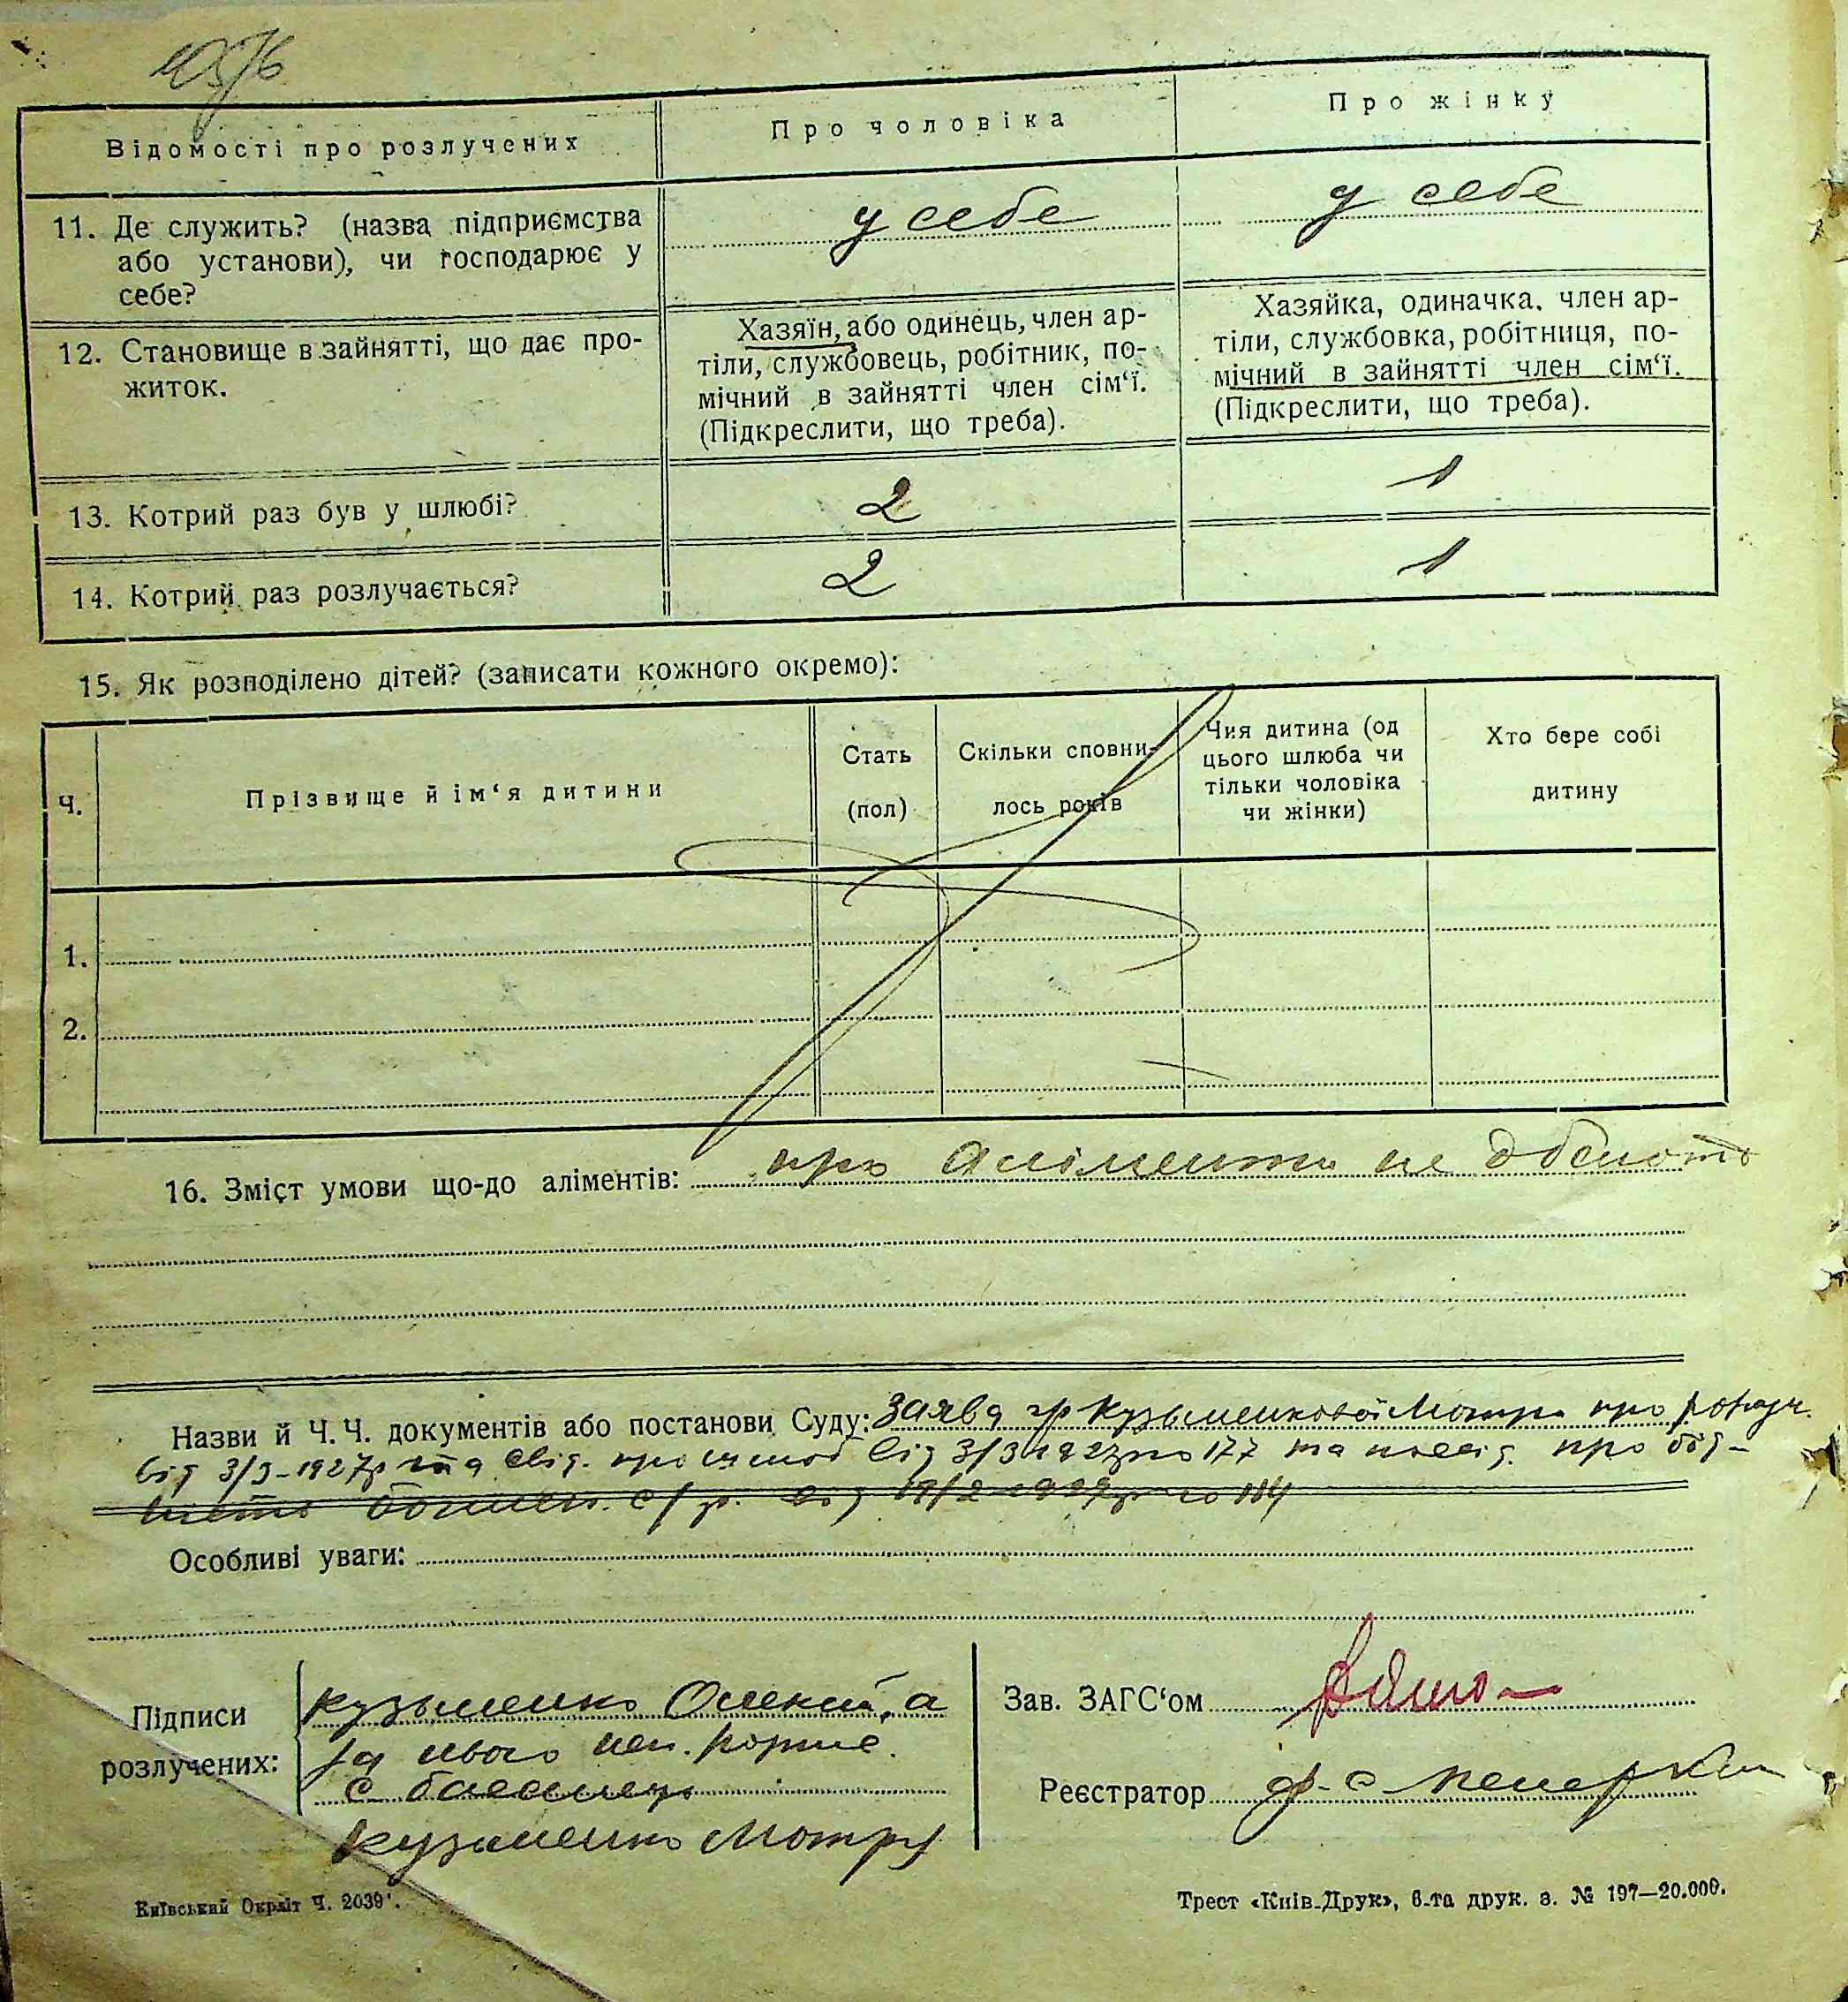 Відомості про розлучених
Про чоловіка
Про жінку
11. Де служить? (назва підприємства
або установи), чи господарює у
себе?
у себе
у себе
12. Становище в зайнятті, що дає про-
житок.
Хазяїн, або одинець, член ар-
тіли, службовець, робітник, по-
мічний в зайнятті член сім‘ї.
(Підкреслити, що треба).
Хазяйка, одиначка, член ар-
тіли, службовка, робітниця, по-
мічний в зайнятті член сім‘ї.
(Підкреслити, що треба).
13. Котрий раз був у шлюбі?
2
1
14. Котрий раз розлучається?
2
1
15. Як розподілено дітей? (записати кожного окремо):
Ч.
Прізвище й ім‘я дитини
Стать
(пол)
Скільки сповни-
лось років
Чия дитина (од
цього шлюба чи
тільки чоловіка
чи жінки)
Хто бере собі
дитину
1.
2.
16. Зміст умови що-до аліментів: про аліменти не
Назви й Ч.Ч. документів або постанови Суду: Заява гр Кузьменкової Мотри про
від 3/3-1927р та свід. про від 3/3 1927р 177 та посвід. про
від 19/2 1927р
Особливі уваги:
Підписи
розлучених:
Кузьменко Олексій, а
за нього
Кузьменко Мотря
Зав. ЗАГС‘ом
Реєстратор
Київський Окрліт Ч. 2039
Трест «Київ-Друк», 6-та друк. з. № 197—20.000.